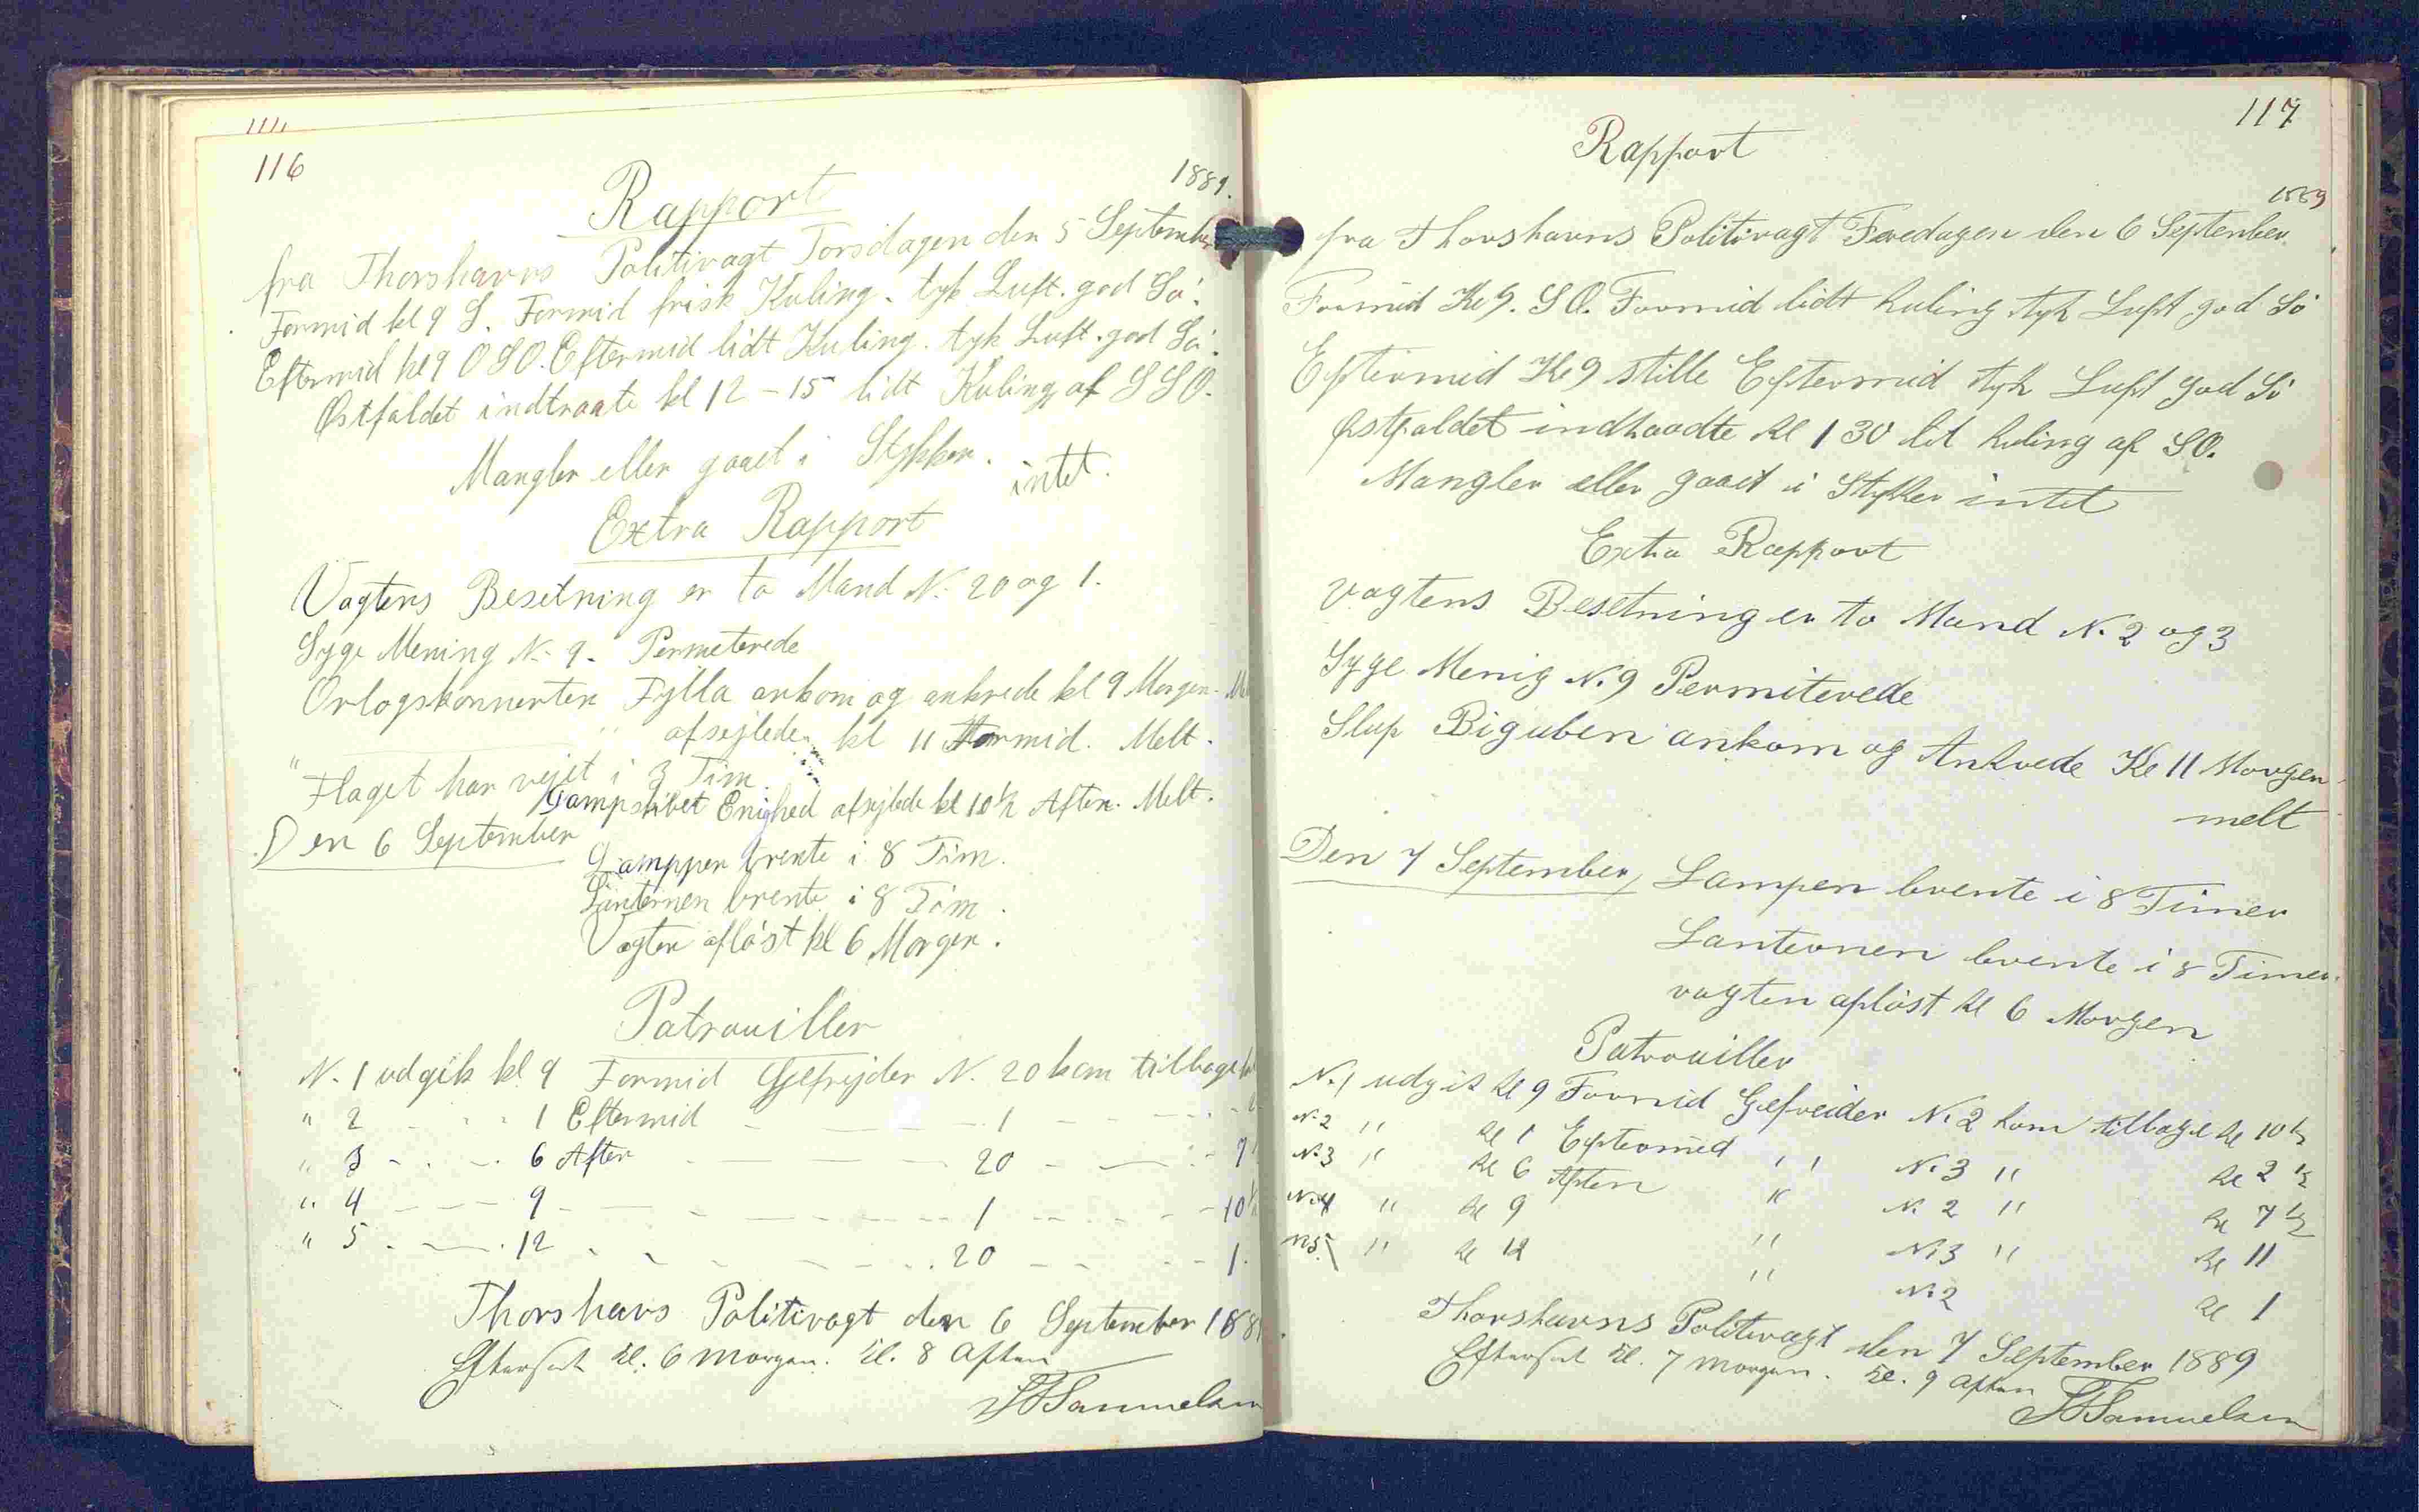 116
1889.
Rapport
fra Thorshavns Politivagt Torsdagen den 5 September
Formid kl 9 S. Formid frisk Kuling. tyk Luft. god Sö.
Eftermid kl 9 OSO. Eftermid lidt Kuling. tyk Luft. god Sö.
Østfaldet indtraate kl 12 - 15 lidt Kuling af SSO.
Mangler eller gaaet i Stykker. intet.
Extra Rapport
Vagtens Besetning er to Mand N. 20 og 1.
Syge Mening N. 9. Permeterede
Orlogskonnerten Fylla ankom og ankrede kl 9 Morgen.
" afsejlede kl 11 Formid. Melt.
" Flaget har vejet i 3 Tim.
Dampskibet Enighed afsejlede kl 10½ Aften. Melt.
Den 6 September
Lampper brente i 8 Tim.
Lanternen brente i 8 Tim.
Vagten aflöst kl 6 Morgen.
Patrouiller
N. 1 udgik kl 9 Formid Gjefrejder N. 20 kom tilbage
" 2 - - 1 Eftermid - - 1 - -
" 3 - - 6 Aften - - 20 - - 7
" 4 - - 9 - - 1 - - 10½
" 5 - - 12 - - 20 - - 1.
Thorshavs Politivagt den 6 September 188
Efterset kl. 6 Morgen. kl. 8 Aften
Samuelsen
117
Rapport
1889
fra Thorshavns Politivagt Feredagen den 6 September
Formid Kl 9. SO. Formid lidt kuling tyk Luft god Sö
Eftermid Kl 9 stille Eftermid tyk Luft god Sö
Østfaldet indtraadte kl 1 30 lit kuling af SO.
Mangler eller gaaet i Stykker intet
Extra Rapport
Vagtens Besetning er to Mand N. 2 og 3
Syge Menig N. 9 Permiterede
Slup Biguben ankom og Ankrede Kl 11 Morgen
melt
Den 7 September, Lampen brente i 8 Timer
Lanternen brente i 8 Timer.
vagten aflöst kl 6 Morgen
Patrouiller
N. 1 udgik kl 9 Formid Gefreider N. 2 kom tilbage kl 10½
N. 2 " kl 1 Eftermid " N. 3 " kl 2½
N. 3 " kl 6 Aften " N. 2 " kl 7½
N. 4 " kl 9 " N. 3 " kl 11
N 5. " kl 12 " N. 2 kl 1
Thorshavns Politivagt den 7 September 1889
Efterset kl. 7 Morgen. kl. 9 Aften
Samuelsen